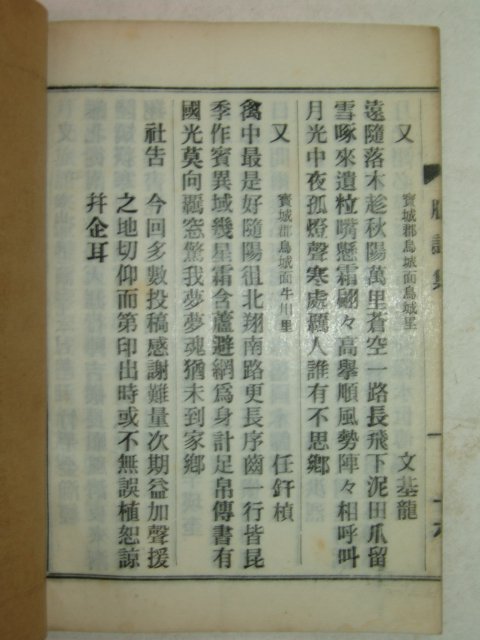 又　寶城郡鳥城面鳥城里　文基龍
遠隨落木趁秋陽萬里蒼空一路長飛下泥田爪留
雪啄來遺粒嘴懸霜翩々高擧順風勢陣々相呼叫
月光中夜孤燈聲寒處羈人誰有不思鄉
又　寶城郡鳥城面牛川里　任釬楨
禽中最是好隨陽徂北翔南路更長序齒一行皆昆
季作賓異域幾星霜含蘆避網爲身計足帛傳書有
國光莫向羈窓驚我夢夢魂猶未到家鄉
社告　今回多數投稿感謝難量次期益加聲援
之地切仰而第印出時或不無誤植恕諒
幷企耳